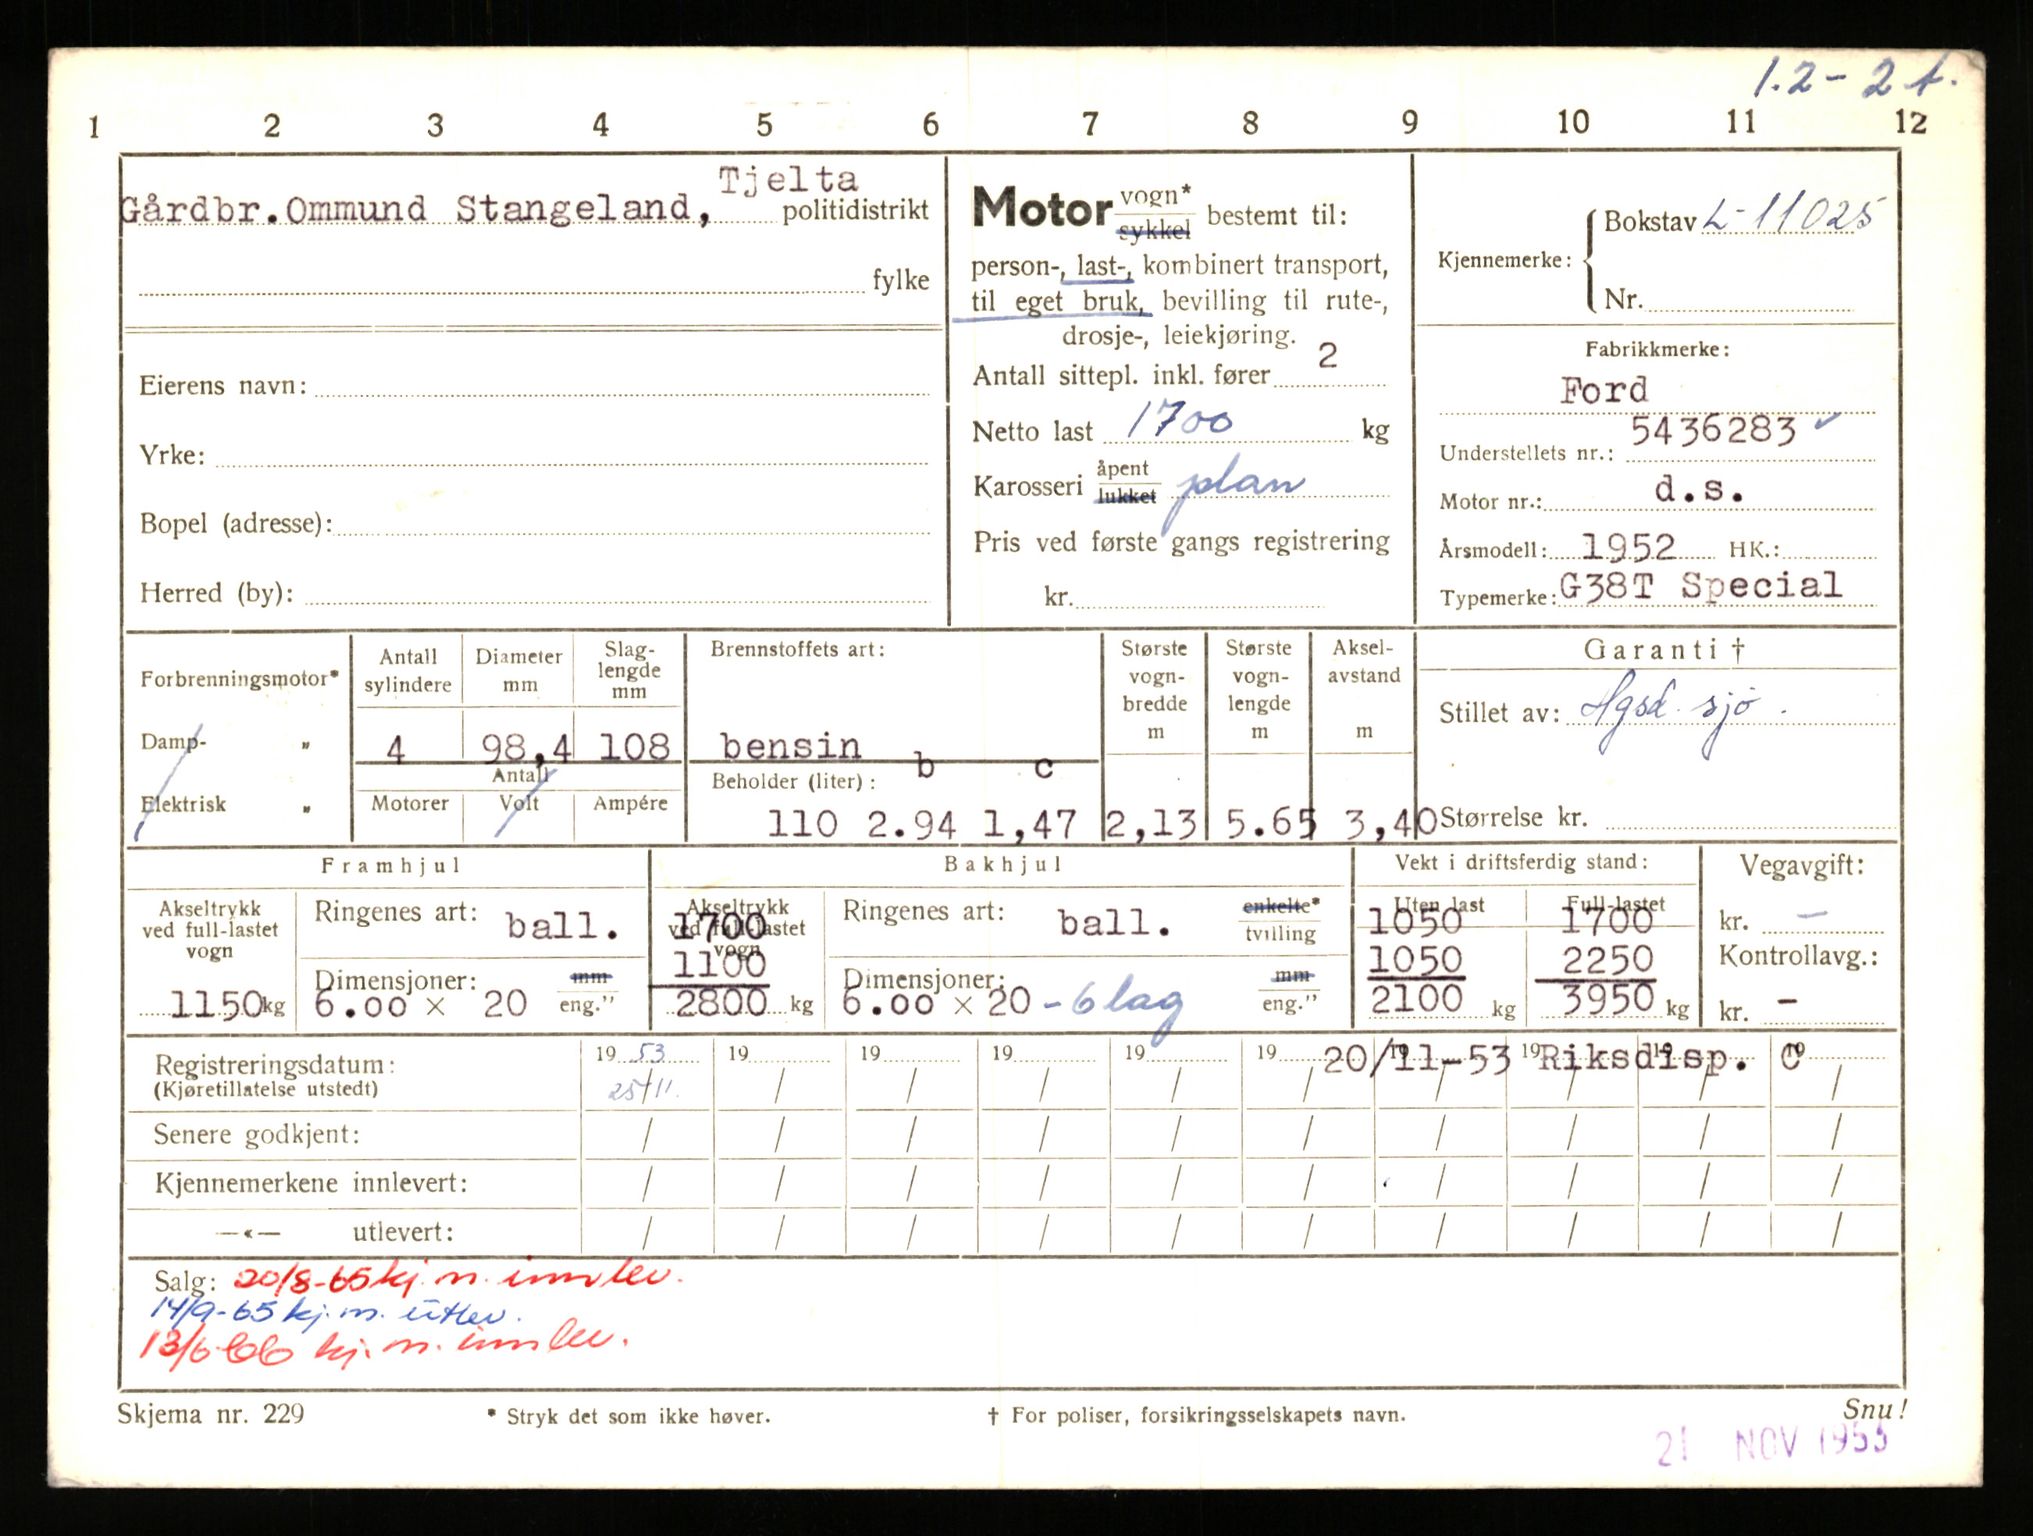 1.2 - 2 t.
1 2 3 4 5 6 7 8 9 10 11 12
Tjelta
Gårdbr. Ommund Stangeland, politidistrikt
fylke
Eierens navn:
Yrke:
Bopel (adresse):
Herred (by):
Motor vogn* sykkel bestemt til:
person-, last-, kombinert transport,
til eget bruk, bevilling til rute-,
drosje-, leiekjøring.
Antall sittepl. inkl. fører 2
Netto last 1700 kg
Karosseri åpent lukket plan
Pris ved første gangs registrering
kr.
Kjennemerke: Bokstav L-11025
Nr.
Fabrikkmerke:
Ford
Understellets nr.: 5436283
Motor nr.: d.s.
Årsmodell: 1952 HK.:
Typemerke: G38T Special
Forbrenningsmotor*
Damp- „
Elektrisk „
Antall sylindere 4
Diameter mm 98,4
Slaglengde mm 108
Antall
Motorer Volt Ampére
Brennstoffets art:
bensin
b c
Beholder (liter):
110 2.94 1,47
Største vogn-bredde m 2,13
Største vogn-lengde m 5.65
Aksel-avstand m 3,40
Garanti †
Stillet av: Hgsd. sjø.
Størrelse kr.
Framhjul
Akseltrykk ved full-lastet vogn
1150 kg
Ringenes art: ball.
Dimensjoner: mm
6.00 x 20 eng."
Bakhjul
Akseltrykk ved full-lastet vogn
1700
1100
2800 kg
Ringenes art: ball. enkelte* tvilling
Dimensjoner: mm
6.00 x 20 - 6 lag eng."
Vekt i driftsferdig stand:
Uten last Full-lastet
1050 1700
1050 2250
2100 kg 3950 kg
Vegavgift:
kr. -
Kontrollavg.:
kr. -
Registreringsdatum: 19 53 19 19 19 19 19 19 19 19 19
(Kjøretillatelse utstedt) 25/11.
20/11-53 Riksdisp. C
Senere godkjent:
Kjennemerkene innlevert:
—«— utlevert:
Salg: 20/8-65 kj. m. innlev.
14/9-65 kj. m. utlev.
13/6-66 kj. m. innlev.
Skjema nr. 229 * Stryk det som ikke høver. † For poliser, forsikringsselskapets navn. Snu!
21 NOV 1953